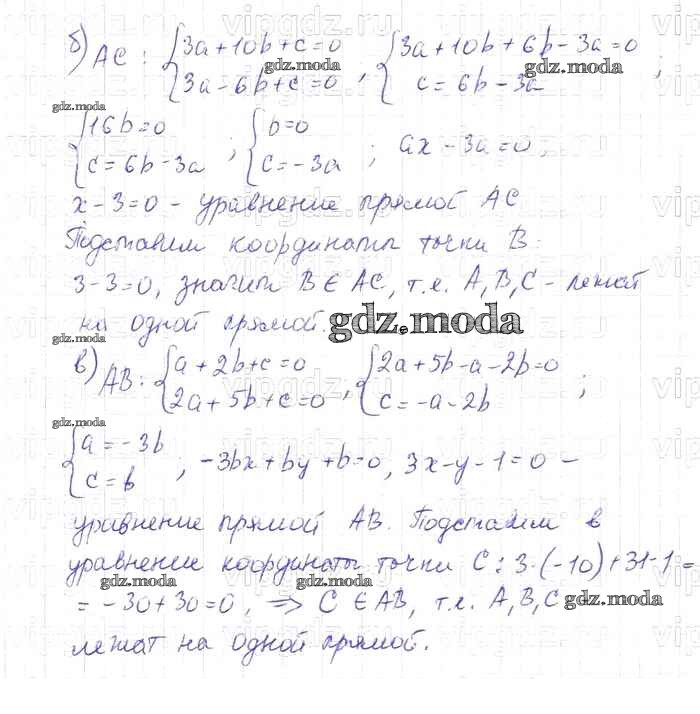 б) AC: {3a+10b+c=0 {3a-6b+c=0, {3a+10b+6b-3a=0 {c=6b-3a;
{16b=0 {c=6b-3a; {b=0 {c=-3a; ax-3a=0;
x-3=0 - уравнение прямой AC
Подставим координаты точки B:
3-3=0, значит B∈AC, т.е. A,B,C - лежат
на одной прямой.
gdz.moda
в) AB: {a+2b+c=0 {2a+5b+c=0, {2a+5b-a-2b=0 {c=-a-2b;
{a=-3b {c=b; -3bx+by+b=0, 3x-y-1=0 -
уравнение прямой AB. Подставим в
уравнение координаты точки C: 3·(-10)+31-1=
= -30+30=0, ⇒ C∈AB, т.е. A,B,C
лежат на одной прямой.